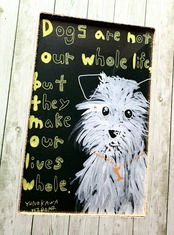 Dogs are not
our whole life,
but
they
make
our
lives
whole.